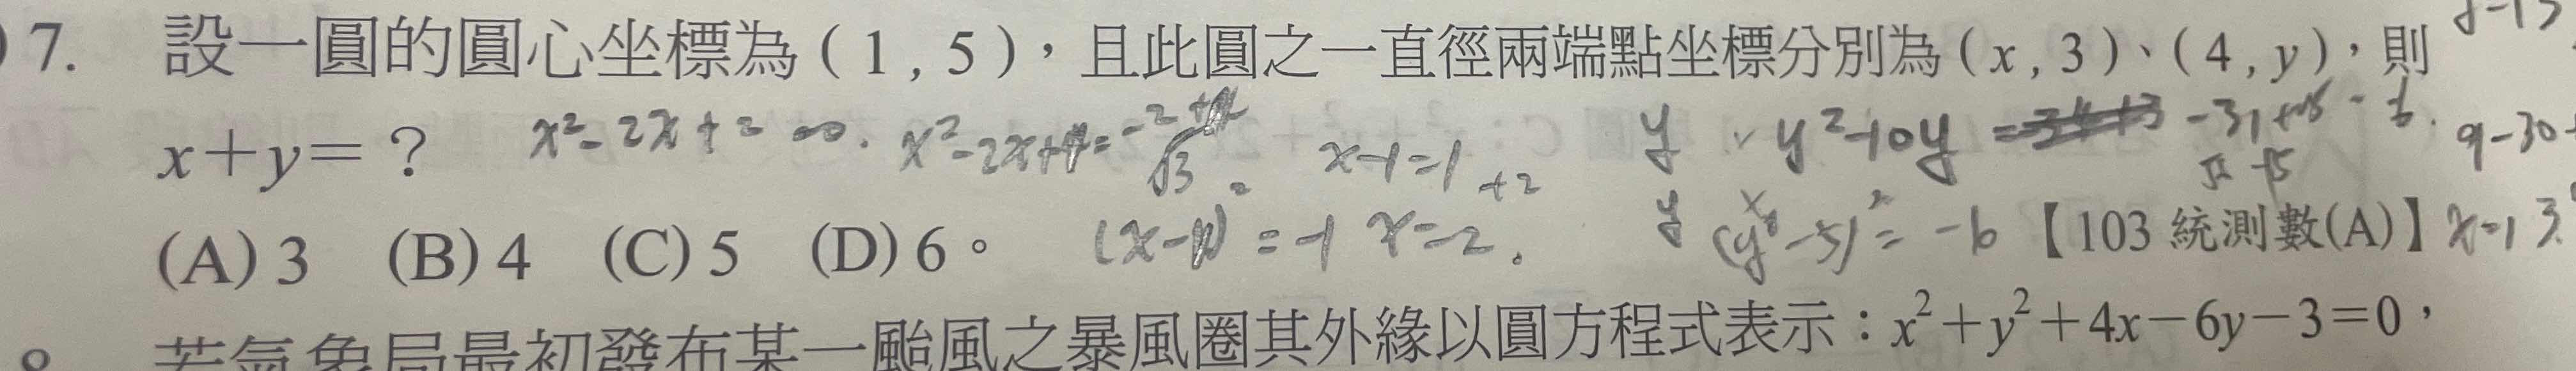 7. 設一圓的圓心坐標為 ( 1 , 5 )，且此圓之一直徑兩端點坐標分別為 ( x , 3 )、( 4 , y )，則
x+y=？
x²-2x+2
x-1=1
y²-10y
9-30
(A) 3 (B) 4 (C) 5 (D) 6。
=-1 x=-2.
=-6
【103 統測數(A)】
8. 若氣象局最初發布某一颱風之暴風圈其外緣以圓方程式表示：x²+y²+4x-6y-3=0，